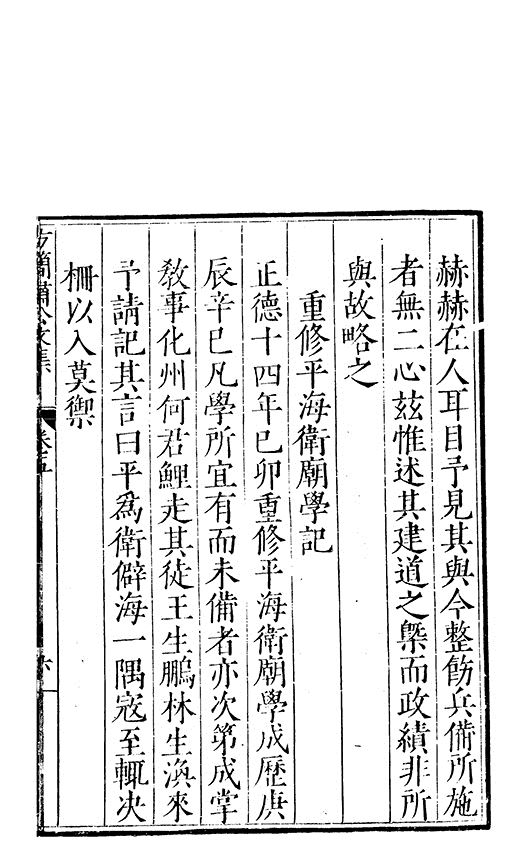 赫赫在人耳目予見其與今整飭兵備所施
者無二心兹惟述其建道之槩而政績非所
與故略之
重修平海衛廟學記
正德十四年已卯重修平海衛廟學成歷庚
辰辛已凡學所宜有而未備者亦次第成掌
敎事化州何君鯉走其徒王生鵬林生渙來
予請記其言曰平爲衛僻海一隅寇至輒决
柵以入莫禦
方簡肅公文集 卷五 六